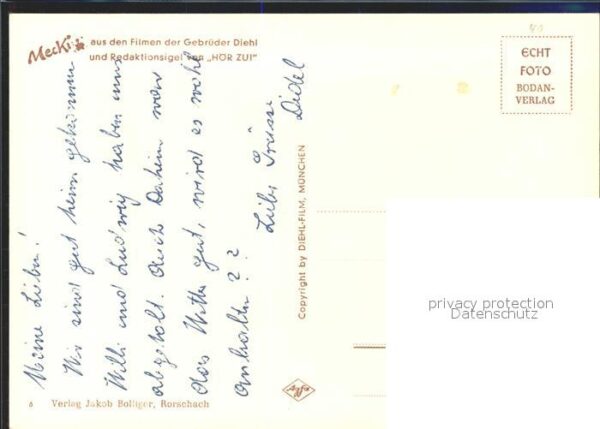 Mecki
aus den Filmen der Gebrüder Diehl
und Redaktionsigel von „HÖR ZU!"
ECHT
FOTO
BODAN-
VERLAG
Meine Lieben!
Wir sind gut heim gekommen
Willi und Ludwig haben uns
abgeholt. Auch Daheim war
das Wetter gut, wird es wohl
anhalten??
Liebe Grüsse
Copyright by DIEHL-FILM, MÜNCHEN
privacy protection
Datenschutz
Agfa
6 Verlag Jakob Bolliger, Rorschach